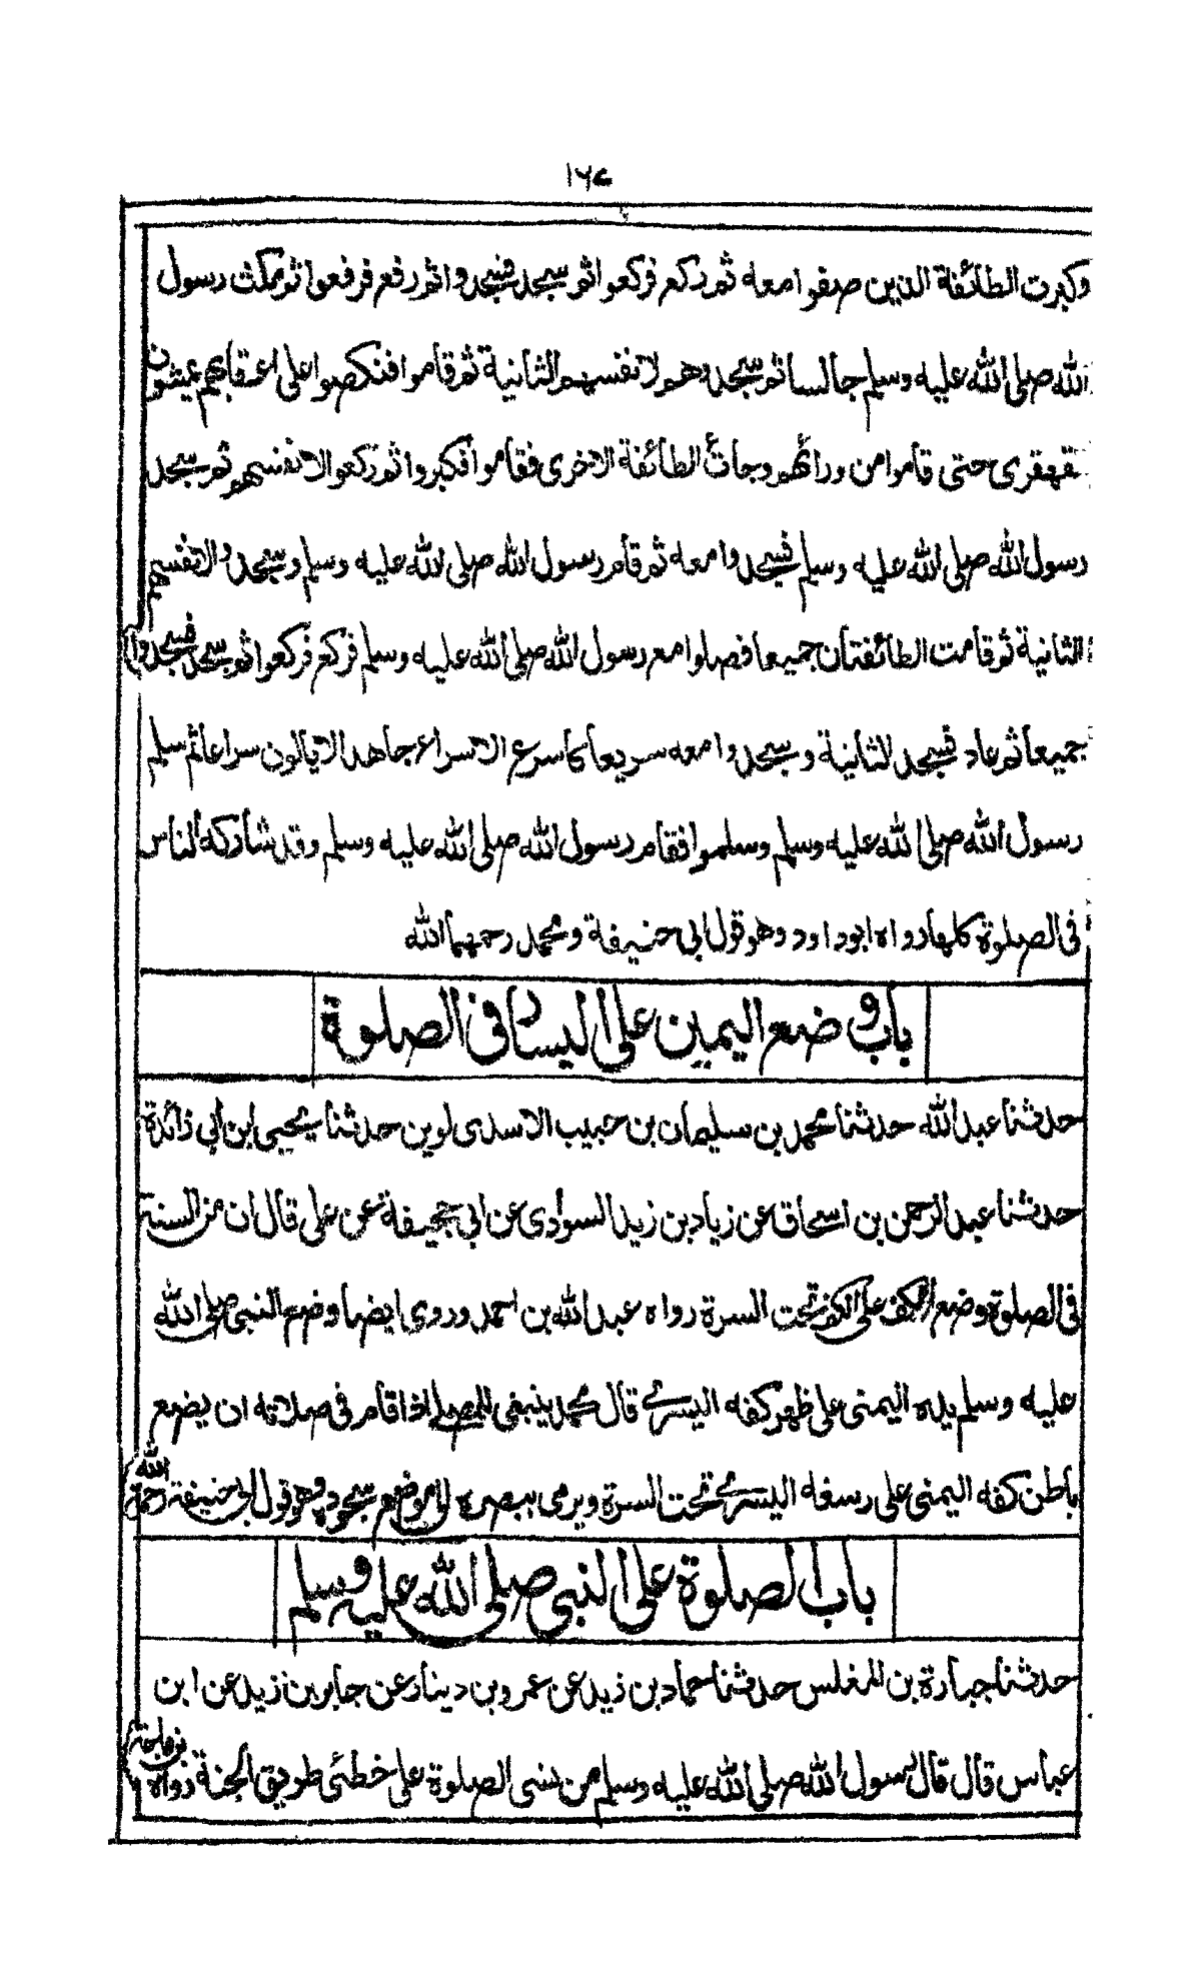 ١٦٤
وكبرت الطائفة الذين صفوا معه ثم ركع فركعوا ثم سجد فسجدوا ثم رفع فرفعوا ثم مكث رسول
الله صلى الله عليه وسلم جالسا ثم سجد وهم لانفسهم الثانية ثم قاموا فنكصوا على اعقابهم يمشون
القهقرى حتى قاموا من ورائهم وجائت الطائفة الاخرى فقاموا فكبروا ثم ركعوا لانفسهم ثم سجد
رسول الله صلى الله عليه وسلم فسجدوا معه ثم قام رسول الله صلى الله عليه وسلم وسجدوا لانفسهم
الثانية ثم قامت الطائفتان جميعا فصلوا مع رسول الله صلى الله عليه وسلم فركع فركعوا ثم سجد فسجدوا
جميعا ثم عاد فسجد الثانية وسجدوا معه سريعا كاسرع الاسراع جاهدا لا يالون سراعا ثم سلم
رسول الله صلى الله عليه وسلم وسلموا فقام رسول الله صلى الله عليه وسلم وقد شاركه الناس
فى الصلوة كلها رواه ابو داود وهو قول ابى حنيفة ومحمد رحمهما الله
باب وضع اليمين على اليسار فى الصلوة
حدثنا عبد الله حدثنا محمد بن سليمان بن حبيب الاسدى لوين حدثنا يحيى ابن أبي زائدة
حدثنا عبد الرحمن بن اسحاق عن زياد بن زيد السوادى عن ابى جحيفة عن على قال ان من السنة
فى الصلوة وضع الكف على الكف تحت السرة رواه عبد الله بن احمد وروى ايضا وضع النبى صلى الله
عليه وسلم يده اليمنى على ظهر كفه اليسرے قال محمد ينبغى للمصلے اذا قام فى صلاته ان يضع
باطن كفه اليمنى على رسغه اليسرے تحت السرة ويرمى ببصره الى موضع سجوده وهو قول ابى حنيفة رحمه الله
باب الصلوة على النبى صلى الله عليه وسلم
حدثنا جبارة بن المغلس حدثنا حماد بن زيد عن عمرو بن دينار عن جابر بن زيد عن ابن
عباس قال قال رسول الله صلى الله عليه وسلم من نسى الصلوة على خطئى طريق الجنة رواه بن ماجة